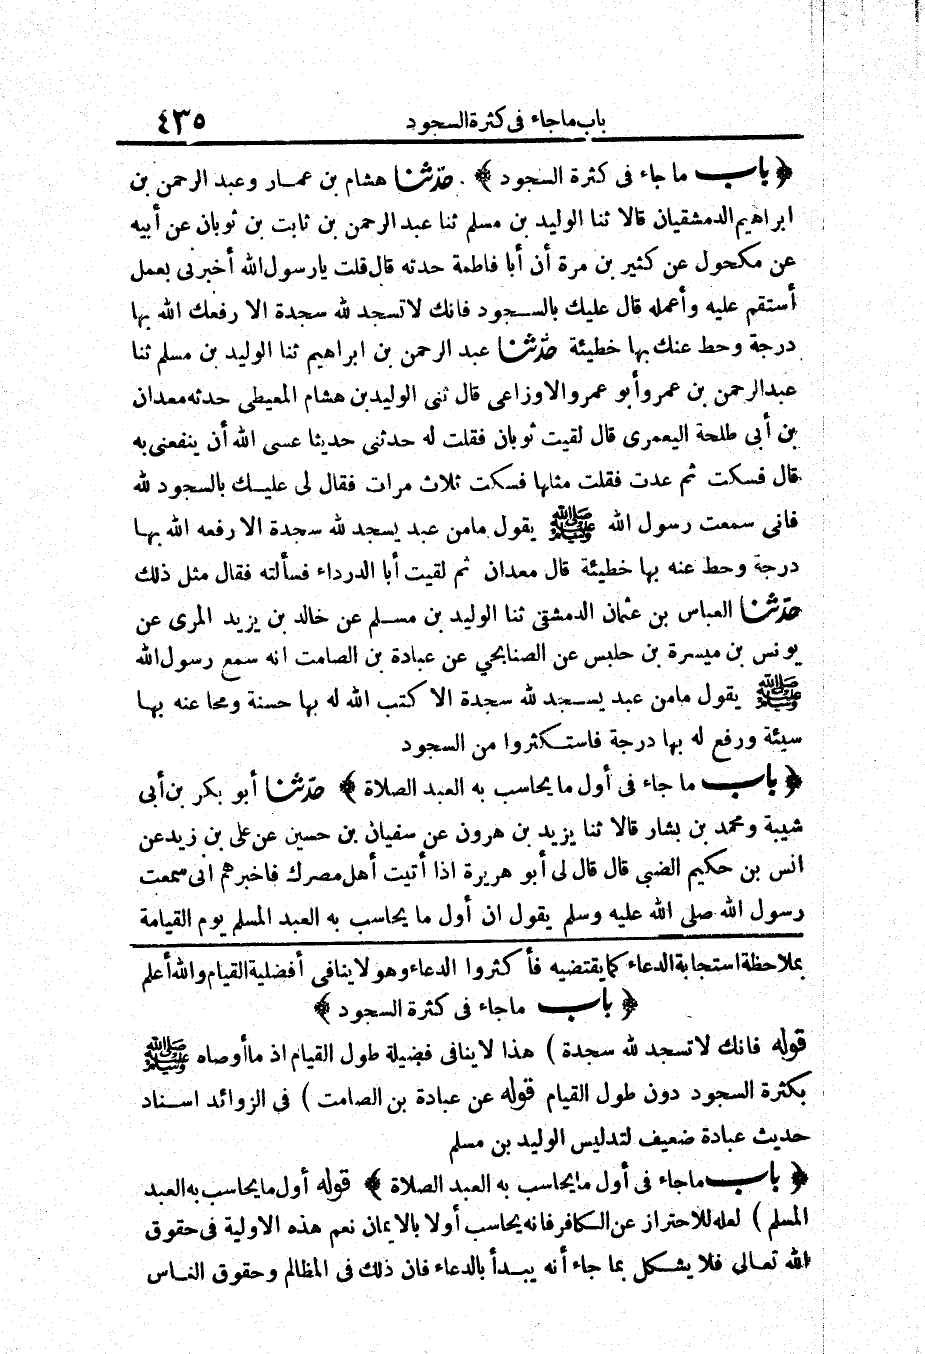 باب ما جاء فى كثرة السجود ٤٣٥
﴿ باب ما جاء فى كثرة السجود ﴾ . حدثنا هشام بن عمار وعبد الرحمن بن
ابراهيم الدمشقيان قالا ثنا الوليد بن مسلم ثنا عبد الرحمن بن ثابت بن ثوبان عن أبيه
عن مكحول عن كثير بن مرة أن أبا فاطمة حدثه قال قلت يارسول الله أخبرنى بعمل
أستقم عليه وأعمله قال عليك بالسجود فانك لاتسجد لله سجدة الا رفعك الله بها
درجة وحط عنك بها خطيئة حدثنا عبد الرحمن بن ابراهيم ثنا الوليد بن مسلم ثنا
عبدالرحمن بن عمرو أبو عمرو الاوزاعى قال ثنى الوليد بن هشام المعيطى حدثه معدان
بن أبى طلحة اليعمرى قال لقيت ثوبان فقلت له حدثنى حديثا عسى الله أن ينفعنى به
قال فسكت ثم عدت فقلت مثلها فسكت ثلاث مرات فقال لى عليك بالسجود لله
فانى سمعت رسول الله ﷺ يقول مامن عبد يسجد لله سجدة الا رفعه الله بها
درجة وحط عنه بها خطيئة قال معدان ثم لقيت أبا الدرداء فسألته فقال مثل ذلك
حدثنا العباس بن عثمان الدمشقى ثنا الوليد بن مسلم عن خالد بن يزيد المرى عن
يونس بن ميسرة بن حلبس عن الصنابحى عن عبادة بن الصامت انه سمع رسول الله
ﷺ يقول مامن عبد يسجد لله سجدة الا كتب الله له بها حسنة ومحا عنه بها
سيئة ورفع له بها درجة فاستكثروا من السجود
﴿ باب ما جاء فى أول ما يحاسب به العبد الصلاة ﴾ حدثنا أبو بكر بن أبى
شيبة ومحمد بن بشار قالا ثنا يزيد بن هرون عن سفيان بن حسين عن على بن زيد عن
انس بن حكيم الضبى قال قال لى أبو هريرة اذا أتيت أهل مصرك فاخبرهم انى سمعت
رسول الله صلى الله عليه وسلم يقول ان أول ما يحاسب به العبد المسلم يوم القيامة
بملاحظة استجابة الدعاء كما يقتضيه فأكثروا الدعاء وهو لاينافى أفضلية القيام والله أعلم
﴿ باب ماجاء فى كثرة السجود ﴾
قوله فانك لاتسجد لله سجدة ) هذا لاينافى فضيلة طول القيام اذ ماأوصاه ﷺ
بكثرة السجود دون طول القيام قوله عن عبادة بن الصامت ) فى الزوائد اسناد
حديث عبادة ضعيف لتدليس الوليد بن مسلم
﴿ باب ماجاء فى أول مايحاسب به العبد الصلاة ﴾ قوله أول مايحاسب به العبد
المسلم ) لعله للاحتراز عن الكافر فانه يحاسب أولا بالايمان نعم هذه الاولية فى حقوق
الله تعالى فلا يشكل بما جاء أنه يبدأ بالدعاء فان ذلك فى المظالم وحقوق الناس